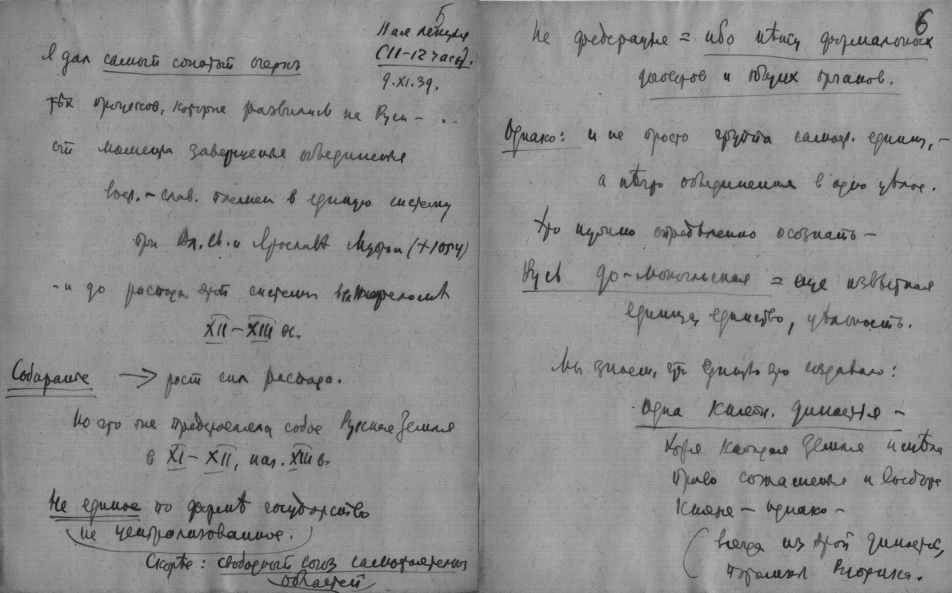 5
II ая лекция
(11–12 часы).
9.XI.39.
Я дал самый сжатый очерк
тѣх процессов, которые развились на Руси –
от момента завершенья объединенья
вост.–слав. племен в единую систему
при Вл. Св. и Ярославѣ Мудром (+1054)
– и до распада этой системы
XII – XIII в.
Собиранье → рост сил распада.
Но что же представляла собою Русская Земля
в XI – XII, нач. XIII в.
Не единое по формѣ государство
(не централизованное.)
Скорѣе: свободный союз самостоятельных
областей
6
Не федерация = ибо нѣту формальных
договоров и общих органов.
Однако: и не просто группа самост. единиц, –
а нѣчто объединенное в одно цѣлое.
Это нужно осознать –
Русь до-монгольская = еще известная
единица, единство, цѣльность.
Мы знаем, что единство это создавало:
Одна княж. династия –
Хотя каждая земля имѣла
право соглашенья и выбора
князя – однако –
(всегда из этой династии,
потомков Рюрика.